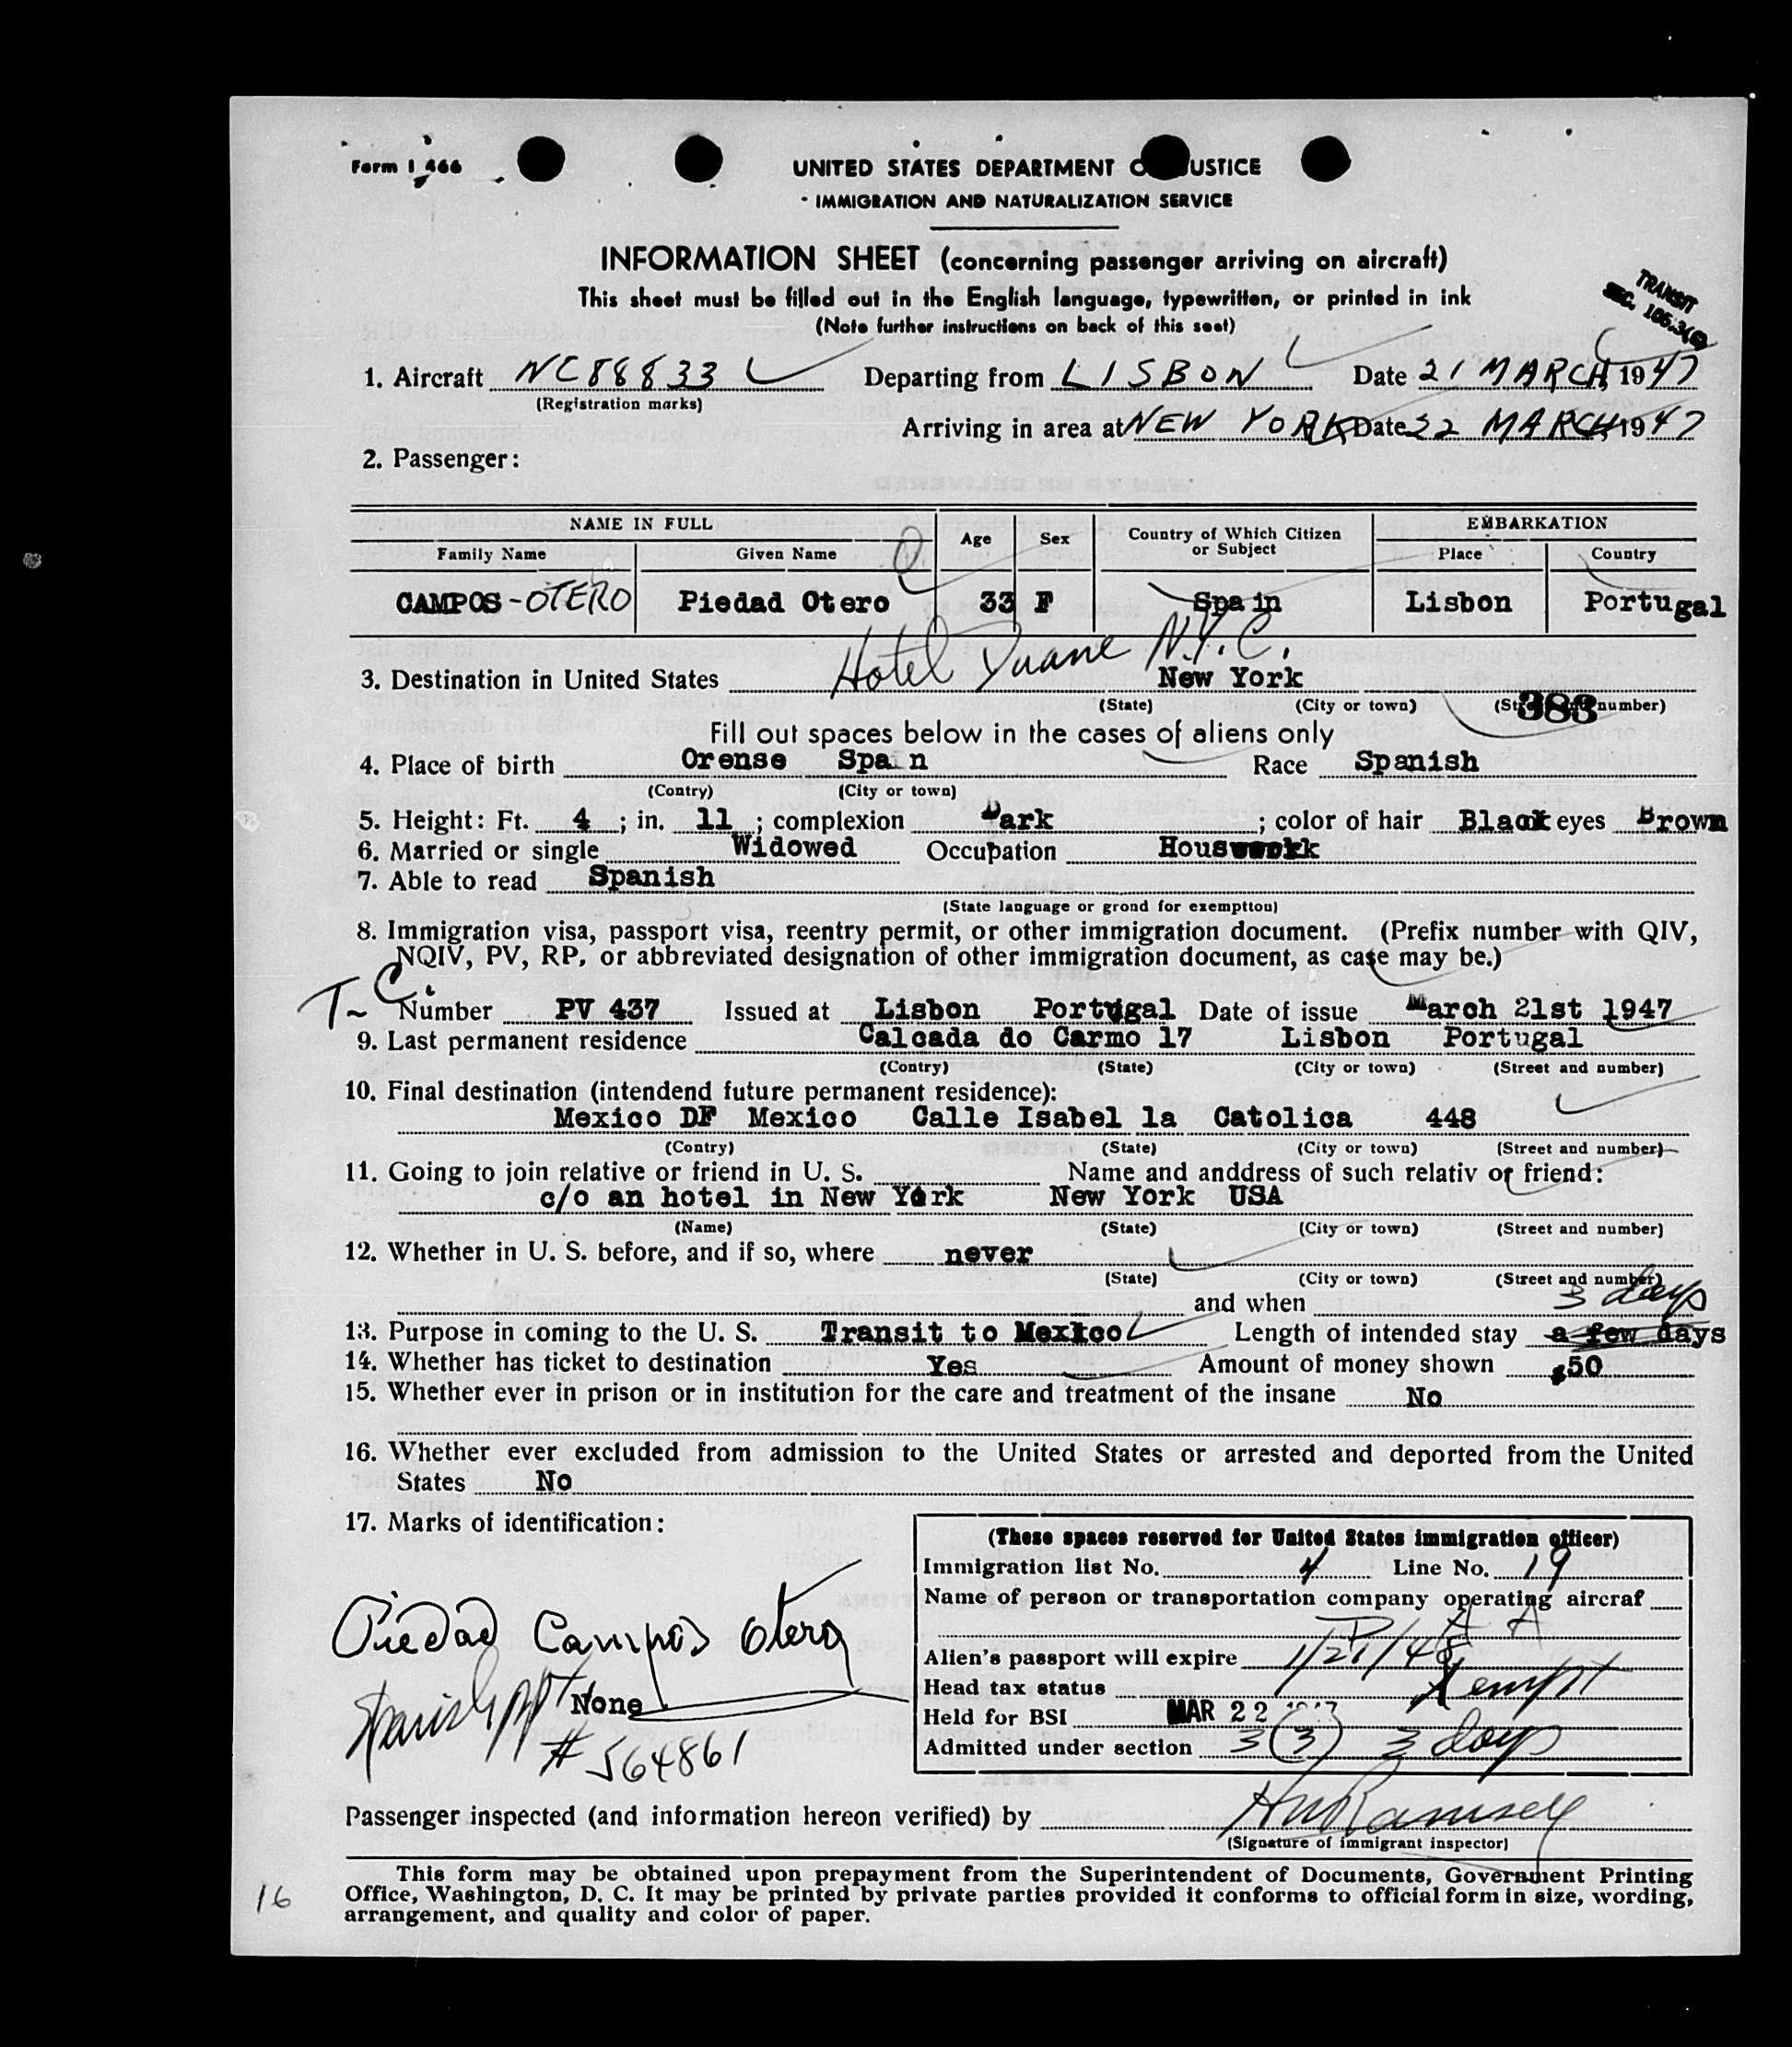 Form I 466
UNITED STATES DEPARTMENT O USTICE
IMMIGRATION AND NATURALIZATION SERVICE
INFORMATION SHEET (concerning passenger arriving on aircraft)
This sheet must be filled out in the English language, typewritten, or printed in ink
(Note further instructions on back of this seet)
TRANSIT
SEC. 105.3(
1. Aircraft NC88833 Departing from LISBON Date 21 MARCH, 1947
(Registration marks)
Arriving in area at NEW YORK Date 22 MARCH, 1947
2. Passenger:
NAME IN FULL Age Sex Country of Which Citizen or Subject EMBARKATION
Family Name Given Name Place Country
CAMPOS-OTERO Piedad Otero 33 F Spain Lisbon Portugal
Hotel Duane N.Y.C.
3. Destination in United States New York
(State) (City or town) (Street and number)
383
Fill out spaces below in the cases of aliens only
4. Place of birth Orense Spa n Race Spanish
(Contry) (City or town)
5. Height: Ft. 4 ; in. 11 ; complexion Dark ; color of hair Black eyes Brown
6. Married or single Widowed Occupation Houswork
7. Able to read Spanish
(State language or grond for exemption)
8. Immigration visa, passport visa, reentry permit, or other immigration document. (Prefix number with QIV,
NQIV, PV, RP, or abbreviated designation of other immigration document, as case may be.)
T-C. Number PV 437 Issued at Lisbon Portugal Date of issue March 21st 1947
9. Last permanent residence Calcada do Carmo 17 Lisbon Portugal
(Contry) (State) (City or town) (Street and number)
10. Final destination (intendend future permanent residence):
Mexico DF Mexico Calle Isabel la Catolica 448
(Contry) (State) (City or town) (Street and number)
11. Going to join relative or friend in U. S. Name and anddress of such relativ or friend:
c/o an hotel in New York New York USA
(Name) (State) (City or town) (Street and number)
12. Whether in U. S. before, and if so, where never
(State) (City or town) (Street and number)
and when 3 days
13. Purpose in coming to the U. S. Transit to Mexico Length of intended stay a few days
14. Whether has ticket to destination Yes Amount of money shown $50
15. Whether ever in prison or in institution for the care and treatment of the insane No
16. Whether ever excluded from admission to the United States or arrested and deported from the United
States No
17. Marks of identification:
(These spaces reserved for United States immigration officer)
Immigration list No. 4 Line No. 19
Name of person or transportation company operating aircraf
P A A
Piedad Campos Otero
Alien's passport will expire 1/21/48
Spanish PPT None
Head tax status Xempt
Held for BSI MAR 22
# 564861
Admitted under section 3(3) 3 days
Passenger inspected (and information hereon verified) by HW Ramsey
(Signature of immigrant inspector)
This form may be obtained upon prepayment from the Superintendent of Documents, Government Printing
Office, Washington, D. C. It may be printed by private parties provided it conforms to official form in size, wording,
arrangement, and quality and color of paper.
16